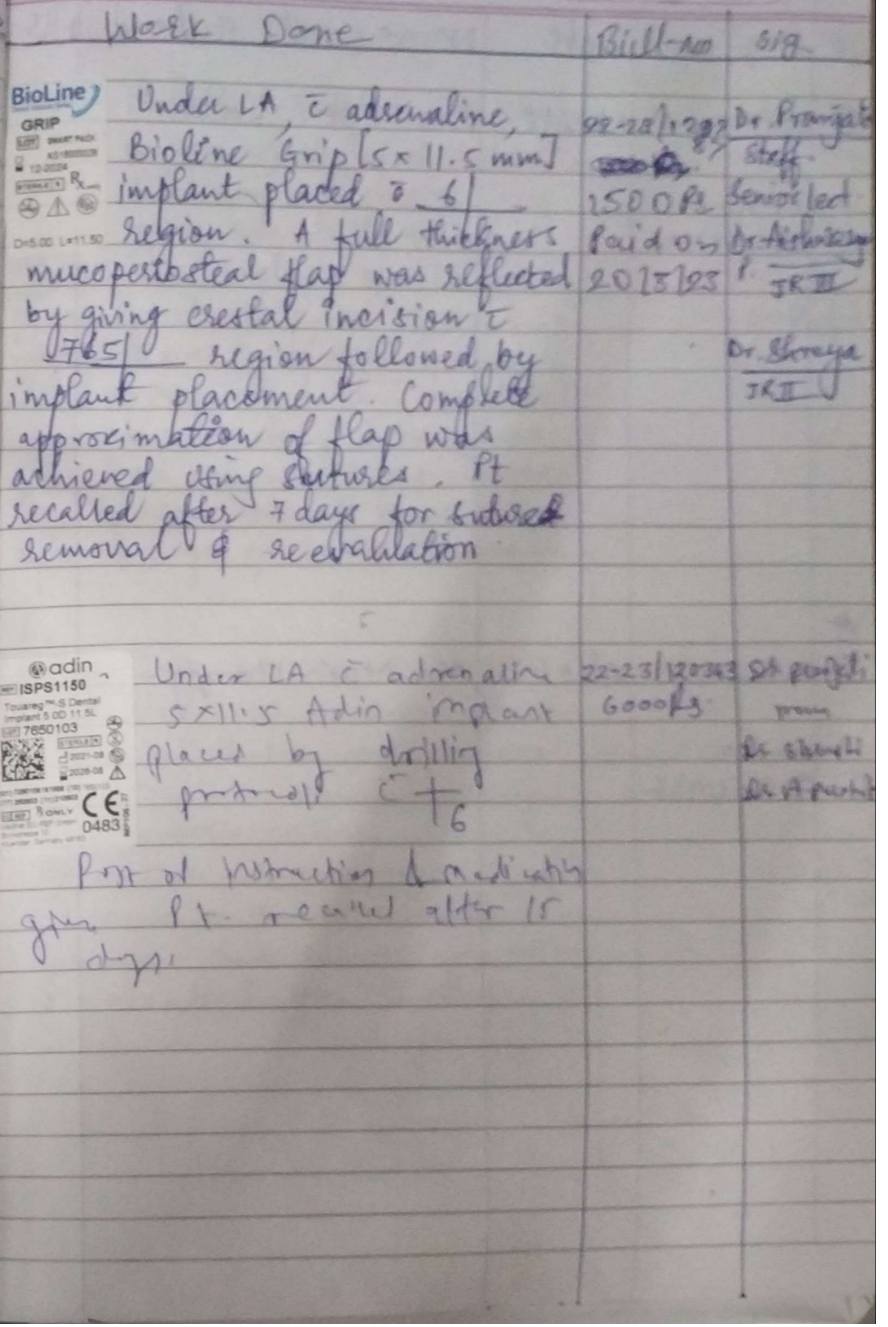 Work Done Bill-no sig.
BioLine
GRIP
LOT SMART PACK
12-2024
STERILE R Rx
D=5.00 L=11.50
Under LA, c̄ adrenaline,
Bioline Grip [5 x 11.5 mm]
implant placed c̄ 6|
region. A full thickness
mucoperiosteal flap was reflected
by giving crestal incision c̄
765| region followed by
implant placement. Complete
approximation of flap was
achieved using sutures. Pt
recalled after 7 days for sutures
removal & reevaluation
1500 Rs
Paid on
20/5/23
Dr. Pranjali
Staff
Senior lect
JR III
Dr. Shreya
JR II
adin
REF ISPS1150
Touareg™-S Dental
Implant 5.0D 11.5L
LOT 7650103
STERILE R
2021-08
2026-08
Rx ONLY
CE
0483
Under LA c̄ adrenaline
5 x 11.5 Adin implant
placed by drillig
protocols c̄ 6
Post op instruction & medication
given Pt. recalled after 15
days.
22-23/120343
6000Rs